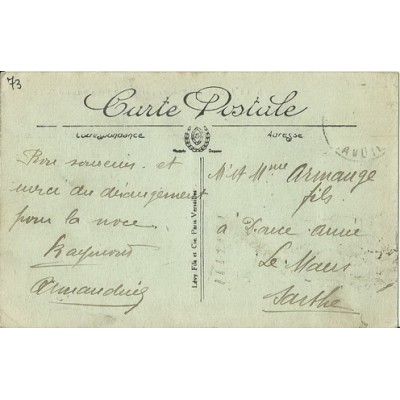 73
Carte Postale
Correspondance
Adresse
Bon souvenir et
merci du dérangement
pour la noce
Raymond
Mr et Mme Armange
fils
à
Le Mans
Sarthe
Lévy Fils et Cie, Paris-Versailles